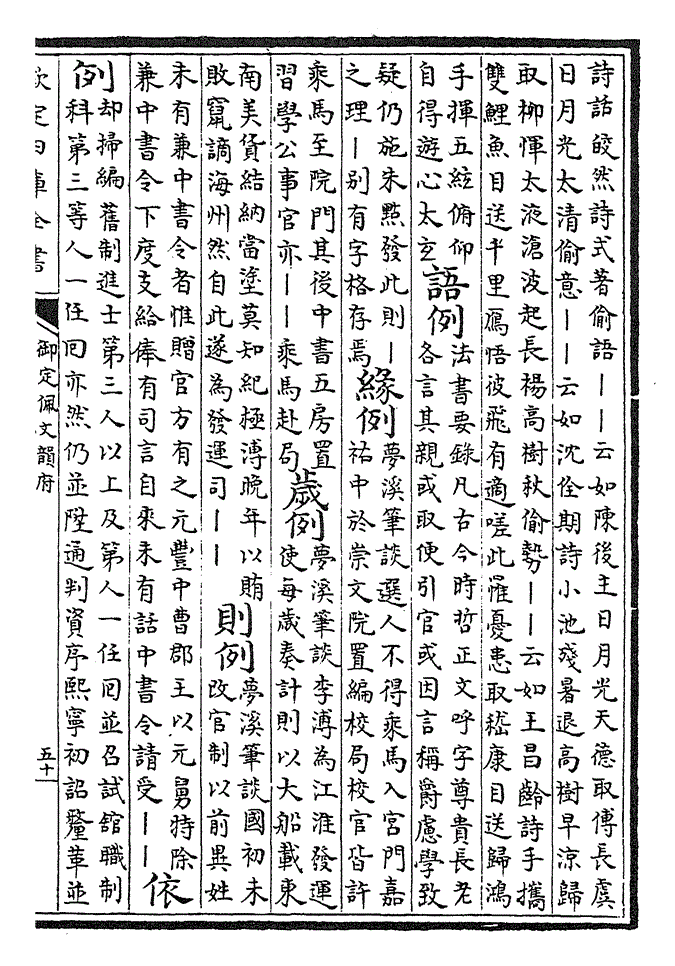 詩話皎然詩式著偷語――云如陳後主日月光天德取傅長虞
日月光太清偷意――云如沈佺期詩小池殘暑退高樹早涼歸
取柳惲太液滄波起長楊高樹秋偷勢――云如王昌齡詩手攜
雙鯉魚目送千里鴈悟彼飛有適嗟此罹憂患取嵇康目送歸鴻
手揮五絃俯仰自得遊心太𤣥
語例
法書要錄凡古今時哲正文呼字尊貴長老
各言其親或取便引官或因言稱爵慮學致
疑仍施朱點發此則―之理―别有字格存焉
緣例
夢溪筆談選人不得乘馬入宮門嘉
祐中於崇文院置編校局校官皆許
乘馬至院門其後中書五房置習學公事官亦――乘馬赴局
歲例
夢溪筆談李溥為江淮發運
使每歲奏計則以大船載東
南美貨結納當塗莫知紀極溥晚年以賄
敗竄謫海州然自此遂為發運司――
則例
夢溪筆談國初未
改官制以前異姓
未有兼中書令者惟贈官方有之元豐中曹郡王以元舅特除
兼中書令下度支給俸有司言自來未有話中書令請受――
依
例
却掃編舊制進士第三人以上及第人一任囘並召試舘職制
科第三等人一任囘亦然仍並陞通判資序熙寧初詔釐革並
欽定四庫全書
御定佩文韻府
五十